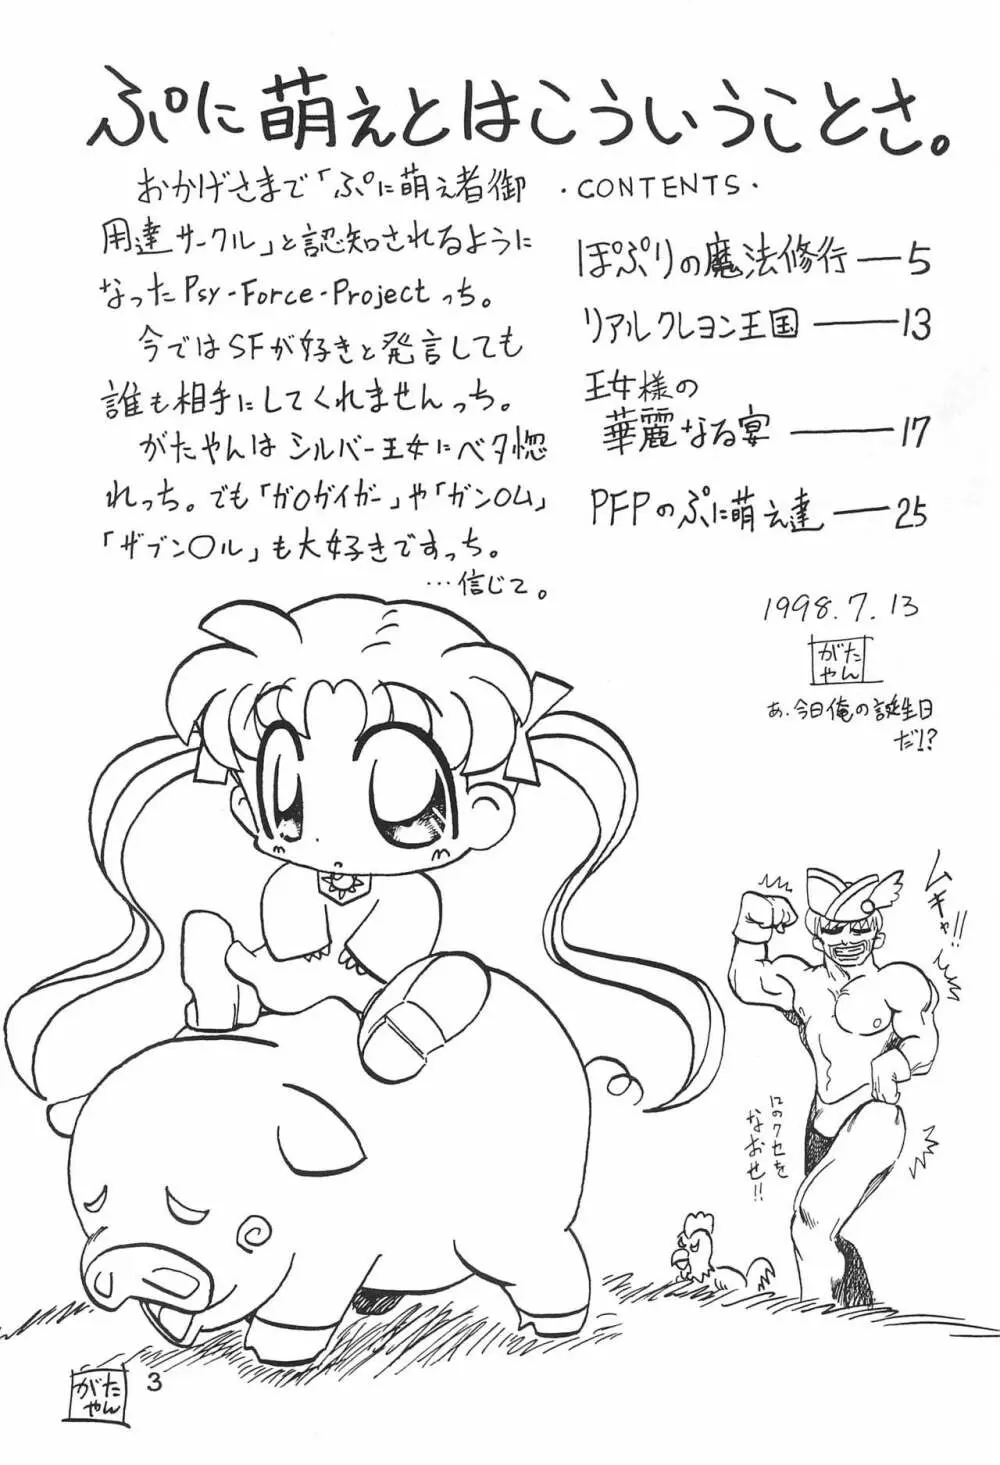 ぷに萌えとはこういうことさ。
おかげさまで「ぷに萌え者御
用達サークル」と認知されるように
なったPsy-Force-Projectっち。
今ではSFが好きと発言しても
誰も相手にしてくれませんっち。
がたやんはシルバー王女にベタ惚
れっち。でも「ガ〇ガイガー」や「ガン〇ム」
「ザブン〇ル」も大好きですっち。
…信じて。
・CONTENTS・
ぽぷりの魔法修行―5
リアルクレヨン王国―13
王女様の
華麗なる宴―17
PFPのぷに萌え達―25
1998.7.13
がた
やん
あ、今日俺の誕生日
だ!?
ムキャ!!
12のクセを
なおせ!!
がた
やん
3